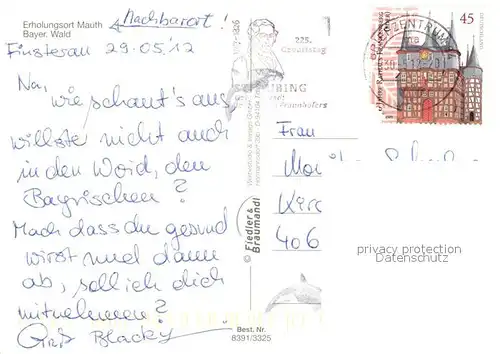 Erholungsort Mauth
Bayer. Wald
Nachbarort!
Finsterau 29.05.12
Na,
wie schaut's aus
willste nicht auch
in den Woid, den
Bayrischen?
Mach dass du gesund
wirst und dann
ab, soll ich dich
mitnehmen?
Gruß Blacky
Best. Nr.
8391/3325
© Fiedler &
Braumandl
225.
Geburtstag
BING
Fraunhofers
BRIEFZENTRUM
45
DEUTSCHLAND
Frau
406
privacy protection
Datenschutz